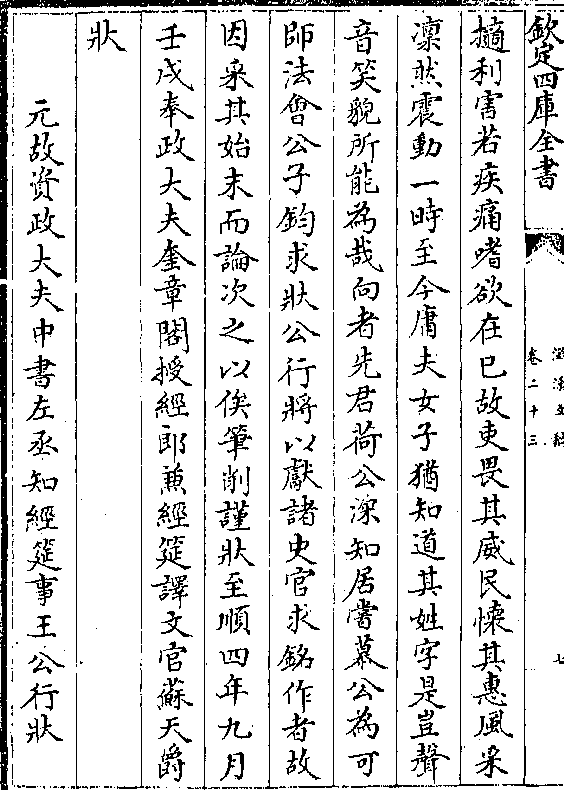 欽定四庫全書
滋溪文稿
卷二十三
七
擿利害若疾痛嗜欲在已故吏畏其威民懷其惠風采
凛然震動一時至今庸夫女子猶知道其姓字是豈聲
音笑貌所能為哉向者先君荷公深知居嘗慕公為可
師法會公子鈞求狀公行將以獻諸史官求銘作者故
因采其始末而論次之以俟筆削謹狀至順四年九月
壬戌奉政大夫奎章閣授經郎兼經筵譯文官蘇天爵
狀
元故資政大夫中書左丞知經筵事王公行狀